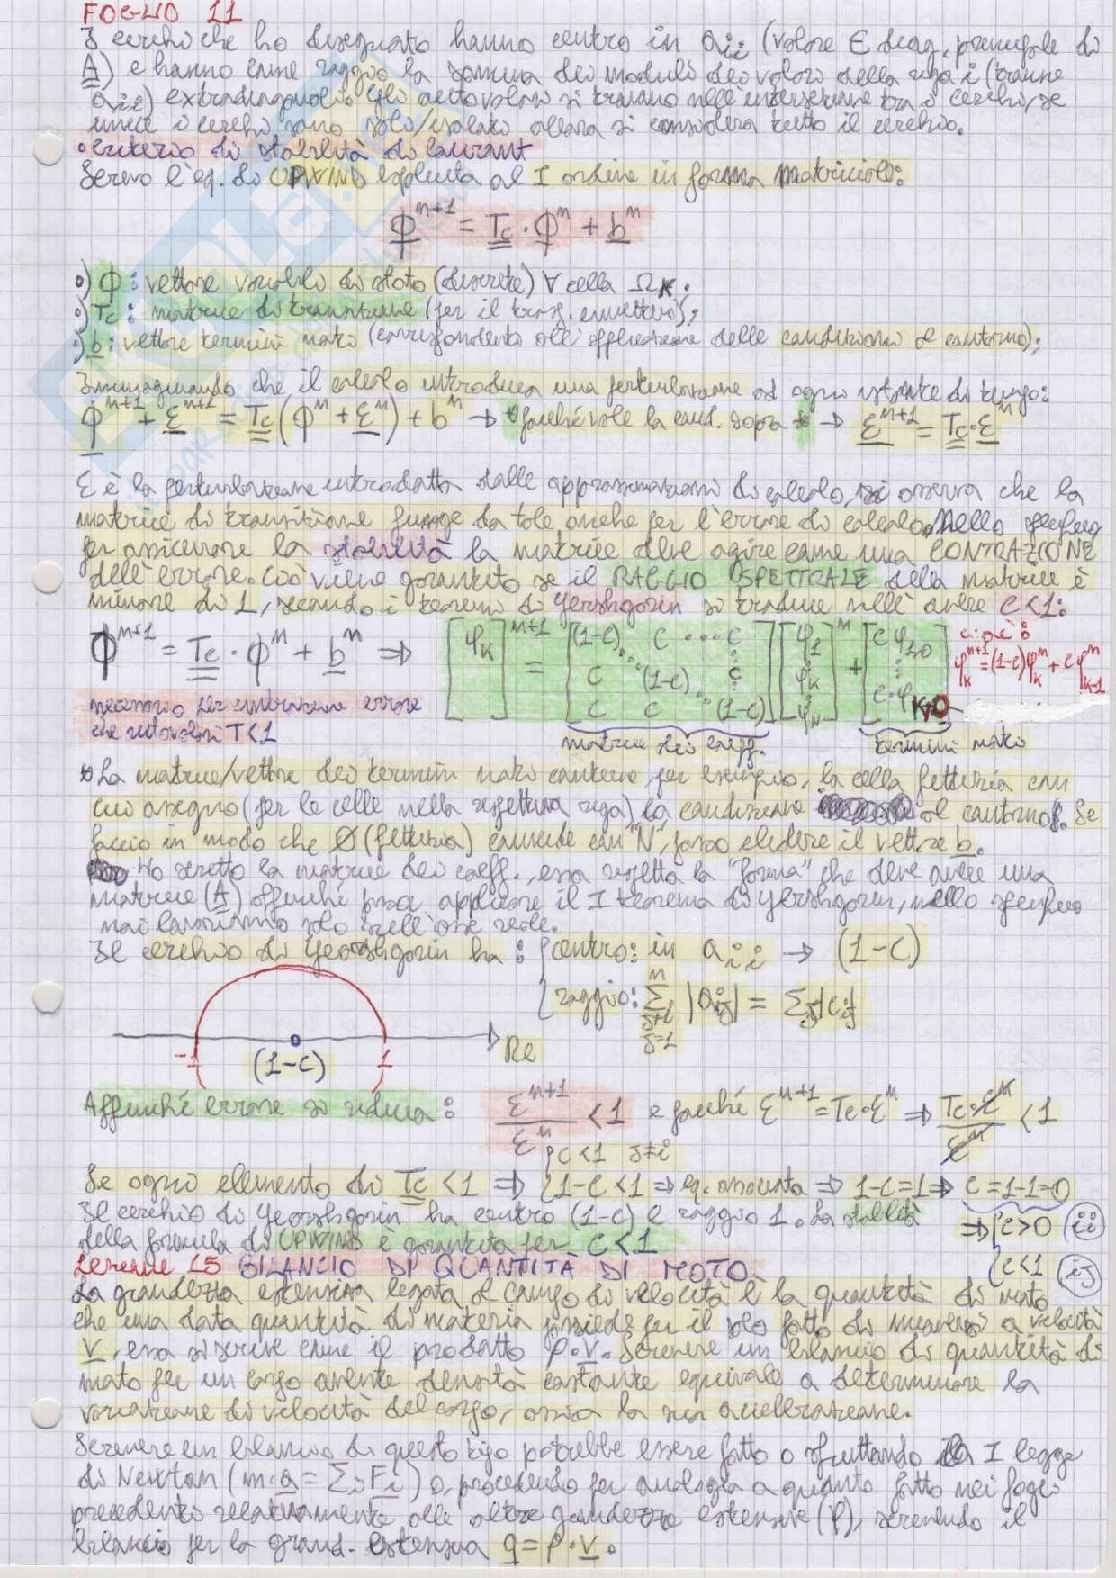 FOGLIO 11
I cerchi che ho disegnato hanno centro in aii (valore ∈ diag. principale di
A) e hanno come raggio la somma dei moduli dei valori della riga i (tranne
aii) extradiagonali. Gli autovalori si trovano nell'intersezione tra i cerchi, se
invece i cerchi sono soli/isolati allora si considera tutto il cerchio.
• Criterio di stabilità di Courant
Scrivo l'eq. di UPWIND esplicita al I ordine in forma matriciale:
Φ^n+1 = Tc · Φ^n + b^n
•) Φ: vettore variabili di stato (discrete) ∀ cella Ωk;
•) Tc: matrice di transizione (per il trasp. convettivo);
•) b: vettore termini noti (corrispondente all'applicazione delle condizioni al contorno);
Immaginando che il calcolo introduca una perturbazione ad ogni istante di tempo:
Φ^n+1 + ε^n+1 = Tc (Φ^n + ε^n) + b^n → poiché vale la cond. sopra → ε^n+1 = Tc · ε^n
ε è la perturbazione introdotta dalle approssimazioni di calcolo, si osserva che la
matrice di transizione funge da tale anche per l'errore di calcolo. Nello specifico
per assicurare la stabilità la matrice deve agire come una CONTRAZIONE
dell'errore. Ciò viene garantito se il RAGGIO SPETTRALE della matrice è
minore di 1, secondo i teoremi di Gershgorin si traduce nell'avere C<1:
Φ^n+1 = Tc · Φ^n + b^n ⇒ [φk]^n+1 = [(1-C) C ... C
C (1-C) C
C C (1-C)] [φ1 φk φN]^n + [C φ1,0 C·φk,0]
cioè:
φk^n+1 = (1-C)φk^n + Cφk-1^n
necessario per contrazione errore
che autovalori T<1
matrice dei coeff.
termini noti
La matrice/vettore dei termini noti contiene, per esempio, la cella fittizia con
cui assegno (per le celle nella rispettiva riga) la condizione al contorno. Se
faccio in modo che Ø (fittizia) coincide con "N", posso elidere il vettore b.
Ho scritto la matrice dei coeff., essa rispetta la "forma" che deve avere una
matrice (A) affinché possa applicare il I teorema di Gershgorin, nello specifico
noi lavoriamo solo nell'asse reale.
Il cerchio di Gershgorin ha: { centro: in aii → (1-C)
raggio: Σ j≠i j=1 n |aij| = Σj |cij|
-1 (1-C) 1 Re
Affinché errore si riduca: ε^n+1/ε^n < 1 e poiché ε^n+1 = Tc·ε^n ⇒ Tc·ε^n/ε^n < 1
C<1 j≠i
Se ogni elemento di Tc < 1 ⇒ { 1-C < 1 ⇒ eq. associata ⇒ 1-C=1 ⇒ C=1-1=0
Il cerchio di Gershgorin ha centro (1-C) e raggio 1. La stabilità ⇒ { C>0 (ii)
della formula di UPWIND è garantita per C<1
C<1 (ij)
Lezione 15 BILANCIO DI QUANTITÀ DI MOTO
La grandezza estensiva legata al campo di velocità è la quantità di moto
che una data quantità di materia possiede per il solo fatto di muoversi a velocità
v, essa si scrive come il prodotto ρ·v. Scrivere un bilancio di quantità di
moto per un corpo avente densità costante equivale a determinare la
variazione di velocità del corpo, ossia la sua accelerazione.
Scrivere un bilancio di questo tipo potrebbe essere fatto o sfruttando la I legge
di Newton (m·a = Σi Fi) o, procedendo per analogia a quanto fatto nei fogli
precedenti relativamente alle altre grandezze estensive (ρ), scrivendo il
bilancio per la grand. estensiva q = ρ·v.